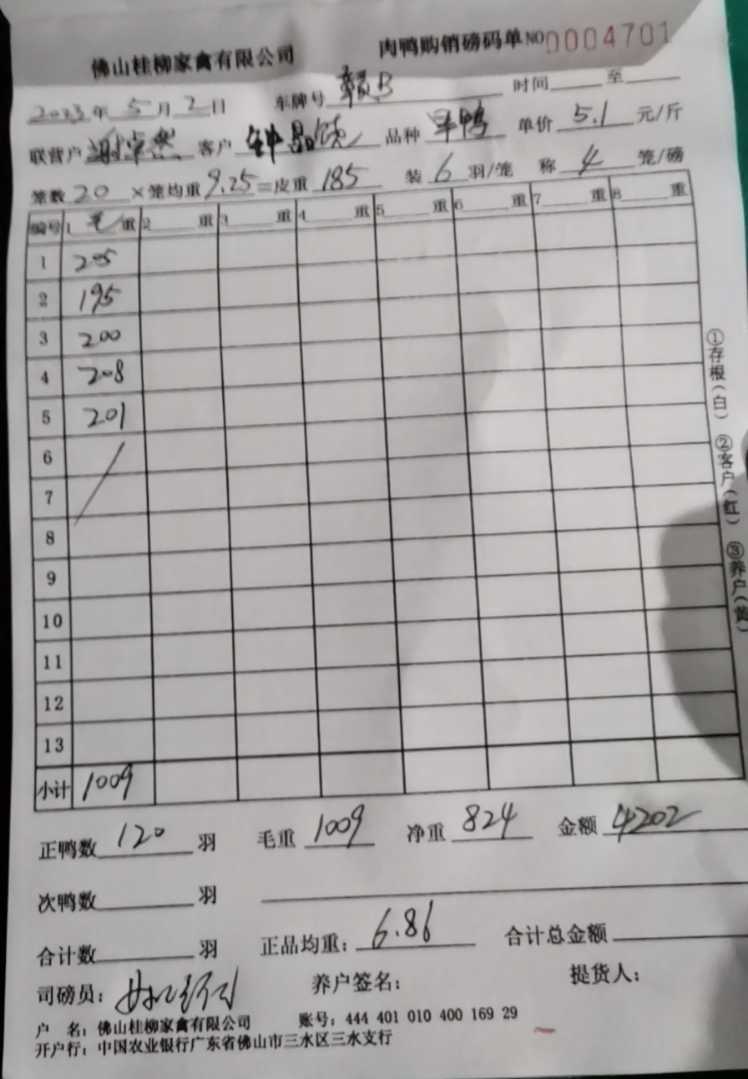 佛山桂柳家禽有限公司 肉鸭购销磅码单 NO 0004701
2023年 5月 2日 车牌号 赣B 时间 至
联营户 客户 钟 品种 旱鸭 单价 5.1 元/斤
笼数 20 ×笼均重 9.25 =皮重 185 装 6 羽/笼 称 4 笼/磅
编号 1 毛 重 2 重 3 重 4 重 5 重 6 重 7 重 8 重
1 205
2 195
3 200
4 208
5 201
6
7
8
9
10
11
12
13
小计 1009
正鸭数 120 羽 毛重 1009 净重 824 金额 4202
次鸭数 羽
合计数 羽 正品均重: 6.86 合计总金额
司磅员: 养户签名: 提货人:
户 名: 佛山桂柳家禽有限公司 账号: 444 401 010 400 169 29
开户行: 中国农业银行广东省佛山市三水区三水支行
①存根(白) ②客户(红) ③养户(黄)